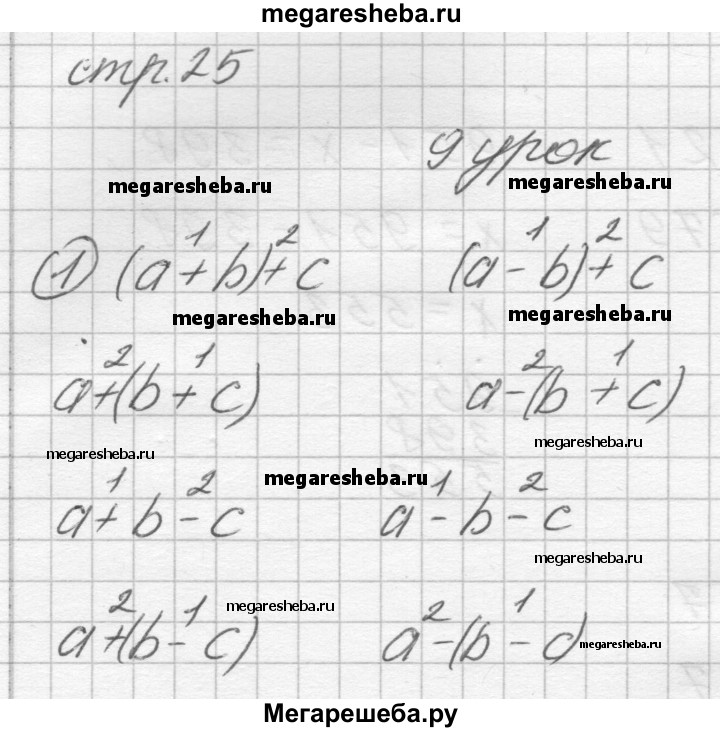 megaresheba.ru
стр. 25
9 урок
megaresheba.ru megaresheba.ru
1 2 1 2
① (a + b) + c (a - b) + c
megaresheba.ru megaresheba.ru
2 1 2 1
a + (b + c) a - (b + c)
megaresheba.ru megaresheba.ru
1 2 megaresheba.ru 1 2
a + b - c a - b - c
megaresheba.ru
2 1 megaresheba.ru 2 1
a + (b - c) a - (b - c) megaresheba.ru
Мегарешеба.ру